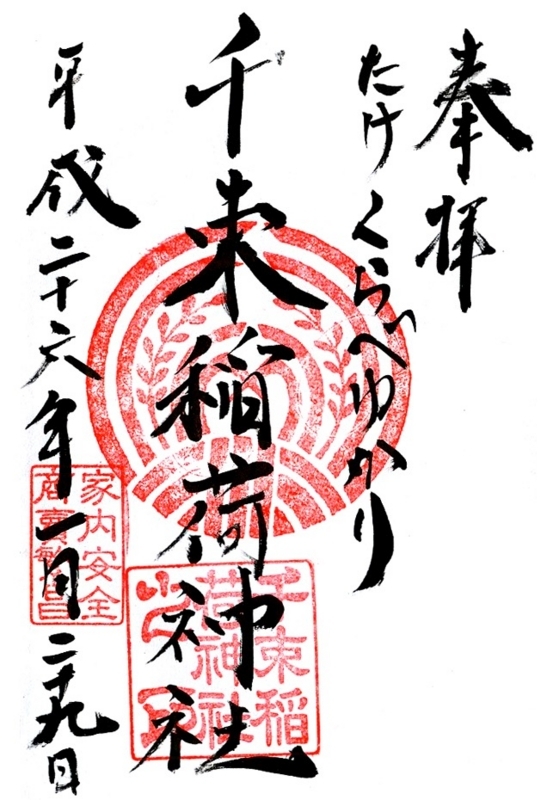 奉拝
たけくらべゆかり
千束稲荷神社
平成二十六年一月二十九日
家内安全
商賣繁昌
千束稲
荷神社